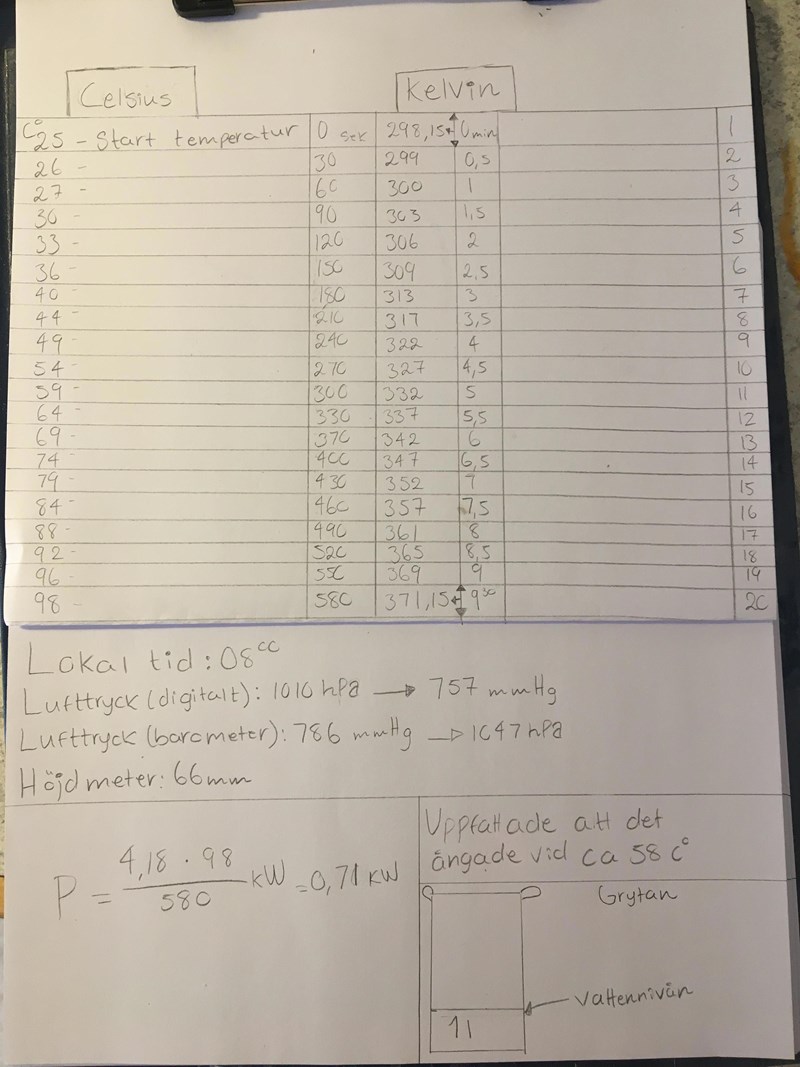 Celsius Kelvin
C° 25 - Start temperatur 0 sek 298,15 0 min 1
26 - 30 299 0,5 2
27 - 60 300 1 3
30 - 90 303 1,5 4
33 - 120 306 2 5
36 - 150 309 2,5 6
40 - 180 313 3 7
44 - 210 317 3,5 8
49 - 240 322 4 9
54 - 270 327 4,5 10
59 - 300 332 5 11
64 - 330 337 5,5 12
69 - 370 342 6 13
74 - 400 347 6,5 14
79 - 430 352 7 15
84 - 460 357 7,5 16
88 - 490 361 8 17
92 - 520 365 8,5 18
96 - 550 369 9 19
98 - 580 371,15 9³⁰ 20
Lokal tid: 08⁰⁰
Lufttryck (digitalt): 1010 hPa → 757 mmHg
Lufttryck (barometer): 786 mmHg → 1047 hPa
Höjd meter: 66mm
P = 4,18 · 98 / 580 kW = 0,71 kW
Uppfattade att det
ångade vid ca 58 C°
Grytan
Vattennivån
1 l